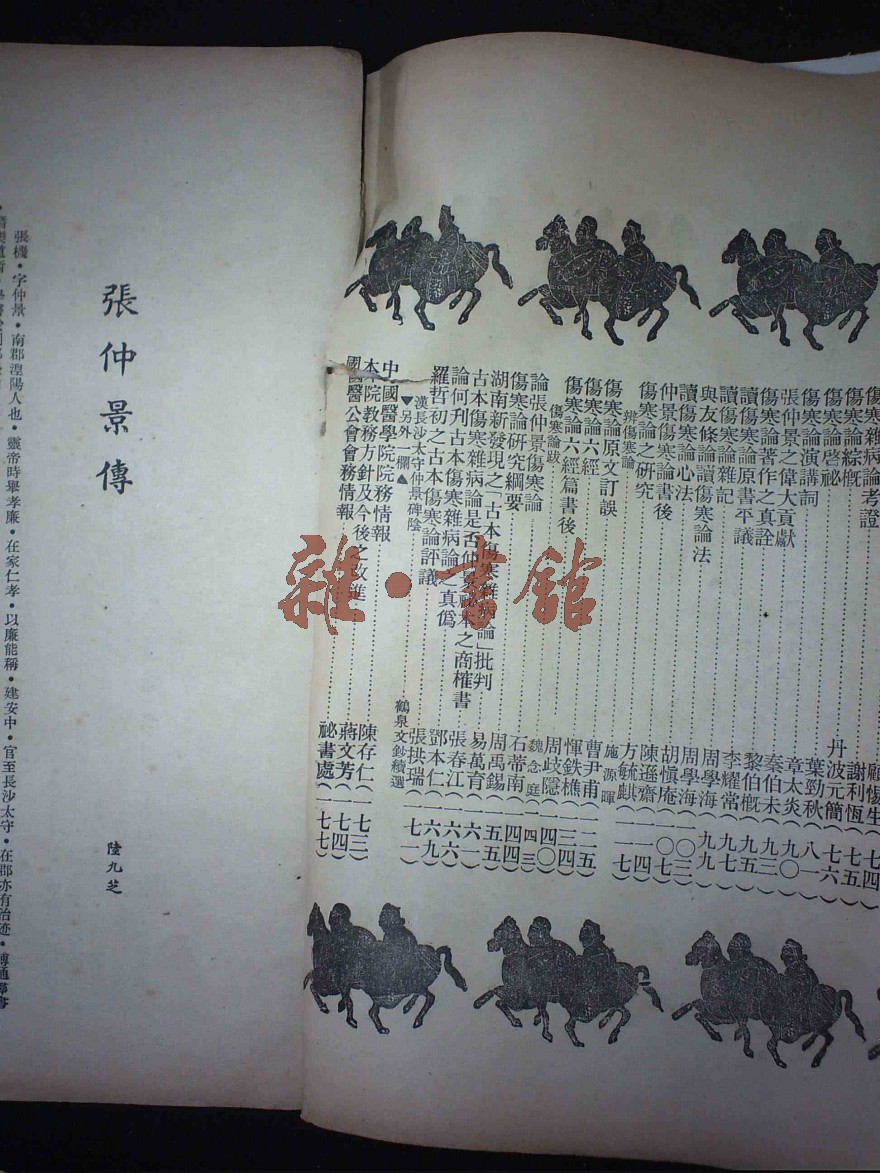 顧惕生(七四)
傷寒雜病論考證 謝利恆(七五)
傷寒論綜概 丹波元簡(七六)
傷寒論啓祕 葉勁秋(八一)
傷寒論演講詞 章太炎(九〇)
張仲景之偉大貢獻 秦伯未(九三)
傷寒論著作之真詮 黎伯概(九五)
讀傷寒論原書平議 李耀常(九七)
讀傷寒論雜記 周學海(九九)
與友條論讀傷寒論法 周學海(九九)
讀傷寒論心法 胡慎庵(一〇三)
仲景傷寒論書後 陳遜齋(一〇四)
傷寒論之研究 方毓麒(一一七)
辨傷寒論 施源暉
傷寒論原文訂誤 曹尹甫(一二五)
傷寒論六經 惲鉄樵(一三四)
傷寒論六經篇書後 周歧隱(一四〇)
傷寒論跋 魏念庭(一四三)
論張仲景傷寒論 石蒂南(一四四)
傷寒論研究綱要 周禹錫(一五五)
湖南新發現之「古本傷寒雜病論」批判 易萬育
古本傷寒雜病論是否仲景祕本之商榷書 張春江(一六一)
論何刊古本傷寒雜病論之真僞 鄧本仁(一六六)
羅哲初之古本傷寒論評議 張拱瑞(一六九)
漢長沙太守仲景碑陰 鶴泉文鈔續選(一七一)
▼另外一欄▲
中國醫學院院務情報 陳存仁(一七三)
本院教務方針及今後之改進 蔣文芳(一七四)
國醫公會會務情報 祕書處(一七七)
雜·書館
張仲景傳
陸九芝
張機·字仲景·南郡湼陽人也·靈帝時舉孝廉·在家仁孝·以廉能稱·建安中·官至長沙太守·在郡亦有治迹·博通群書